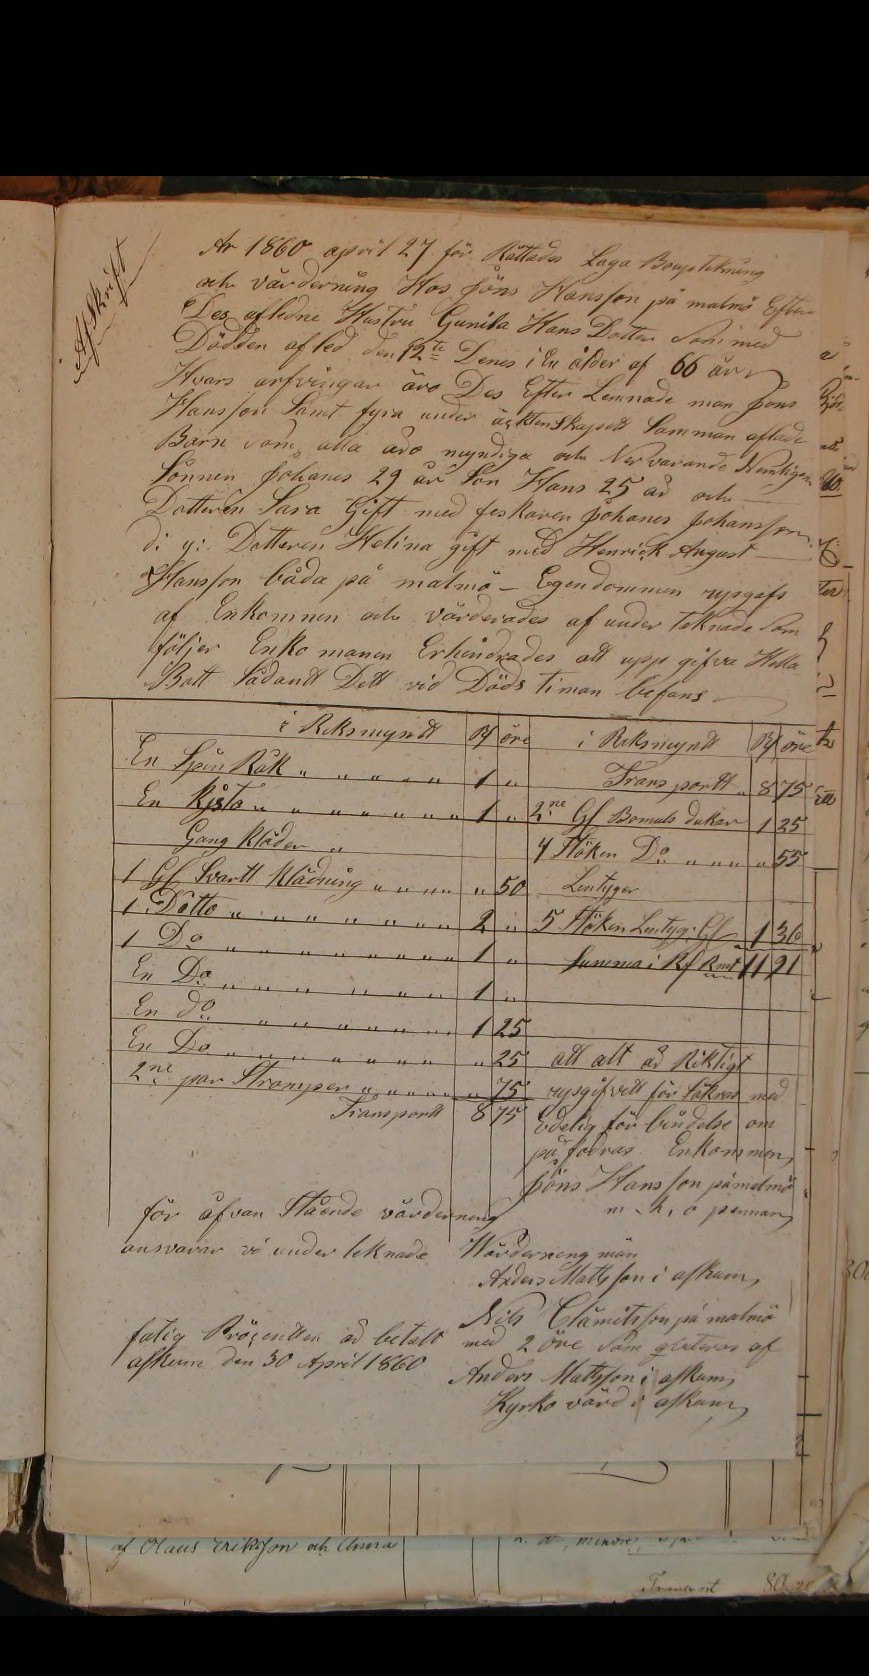 Afskrift
År 1860 april 27 för Rättades Laga Bouptekning
och värdderning Hos Jöns Hansson på malmö Efter
Des afledne Hustru Gunila Hans Dotter Som med
Dödden afled den 12te Denes i En ålder af 66 år
Hvars arfvingar äro Des Efter Lemnade man Jöns
Hansson Samt fyra under äcktenskapett Samman aflade
Barn Som alla äro myndiga och Nervarande Nemligen
Sönnen Johanes 29 år Son Hans 25 år och
Dotteren Sara Gift med feskaren Johanes Johansson
di y: Dotteren Helina gift med Henrick August
Hansson båda på malmö - Egendommen upgafs
af Enkomnen och värderades af under teknade Som
följer Enko manen Erhindrades att upp gifva Hella
Bott Sådantt Dett vid Döds timan befans
i Reksmyndtt Rf öre i Reksmyndtt Rf öre
En Spin Råk " " " " " 1 " Trans portt " 8 75
En Kjsta " " " " " " " 1 " 2ne Gl Bomuls dukar 1 25
Gang Kläder " 4 Støken Do " " " " 55
1 Gl Svartt Klädning " " " " " 50 Lintyger
1 Ditto " " " " " " " 2 " 5 Støken Lintyg: Gl 1 36
1 Do " " " " " " " 1 " Summa i Rf Rmt 11 91
En Do " " " " " " " 1 "
En do " " " " " " " 1 25
En Do " " " " " " " " 25 att alt är Riktigt
2ne par Strømper " " " " " 75 upgifvett för säkras med
Transportt 8 75 Edelig för bindelse om
på fodras Enkommen,
Jöns Hansson på malmö
m. h, o pennan,
för åfvan Stående värderneng
ansvarar vi under teknade Wärderneng män
Anders Mattsson i askum,
Nils Clämitsson på malmö
fatig Prósentten är betalt med 2 öre Som qviteras af
askum den 30 April 1860 Anders Mattsson i askum,
Kyrko värd i askum,
af Olaus Eriksson och Anna
Transport 80